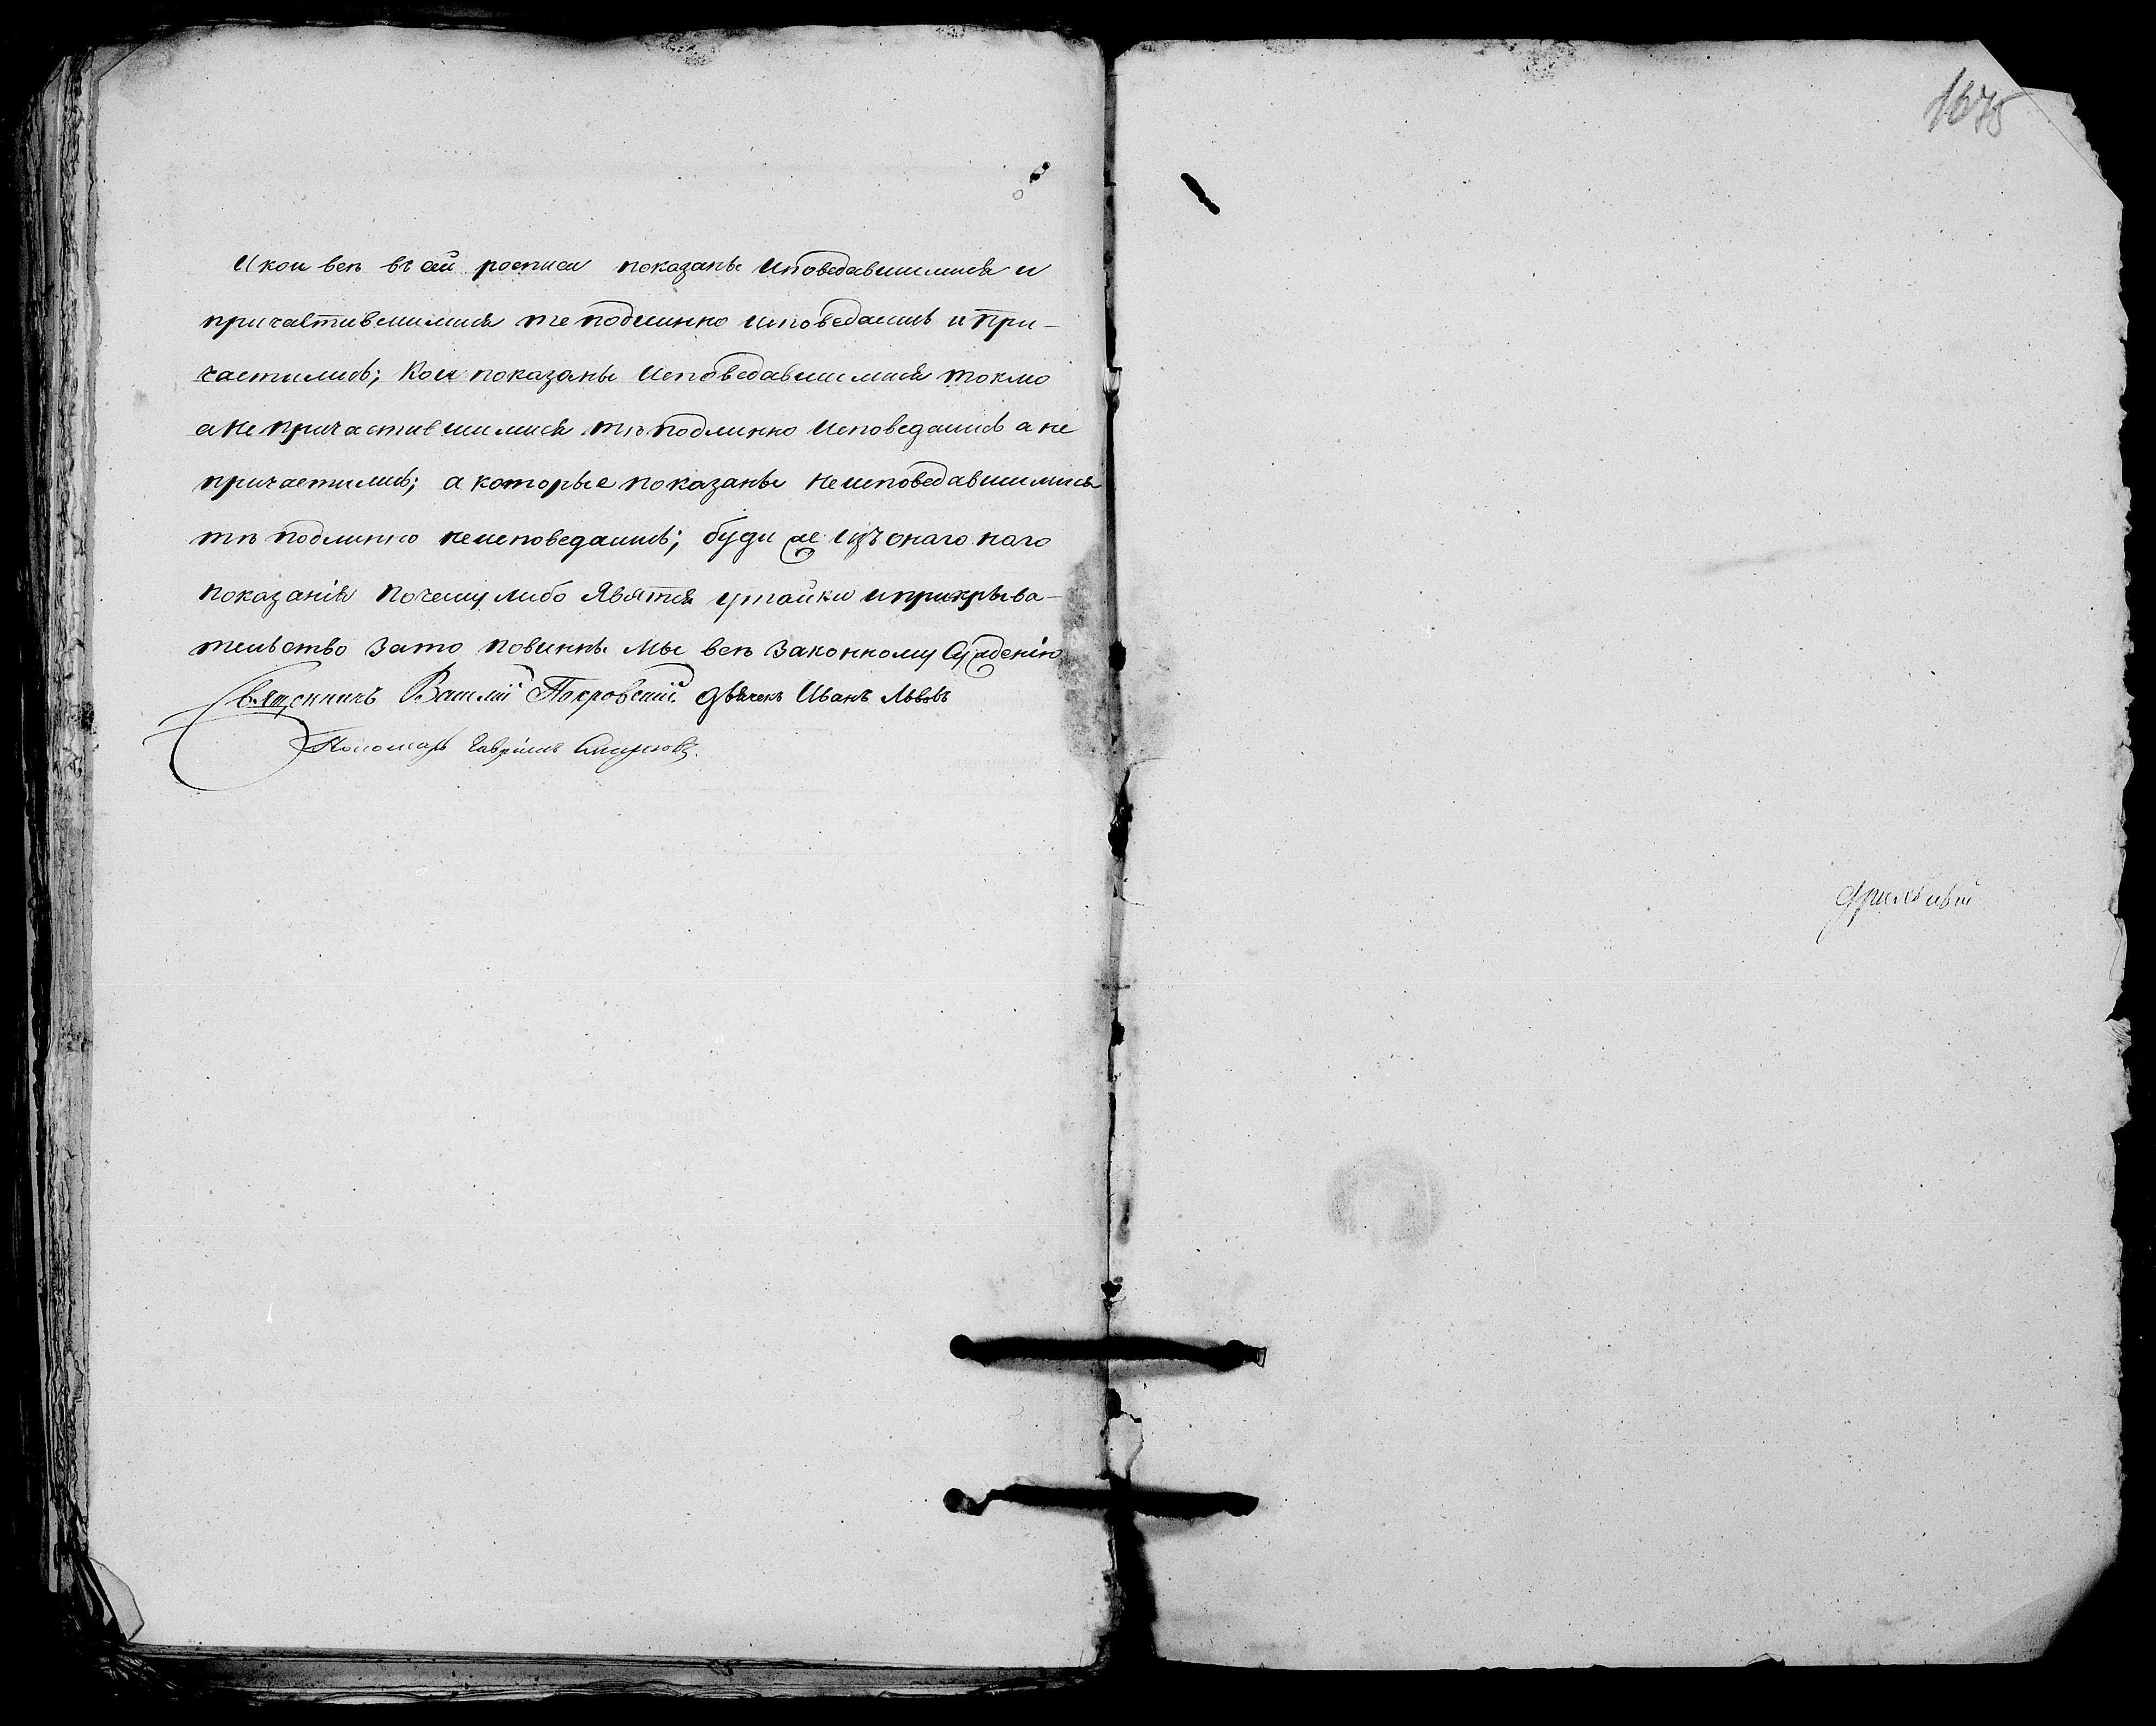 И кои всѣ въ сей росписи показаны исповедавшимися и
причастившимися те подлинно исповедались и при-
частились; Кои показаны исповедавшимися токмо
а не причастившимися тѣ подлинно исповедались а не
причастились; а которые показаны не исповедавшимися
тѣ подлинно не исповедались; буди же изъ онаго
показанія почему либо явятся утайки и прикрыва-
тельство за то повинны мы всѣ законному сужденію
Священникъ Василій Покровскій. дьячекъ Иванъ Львовъ
Пономарь Гавріилъ Смирновъ.
1675